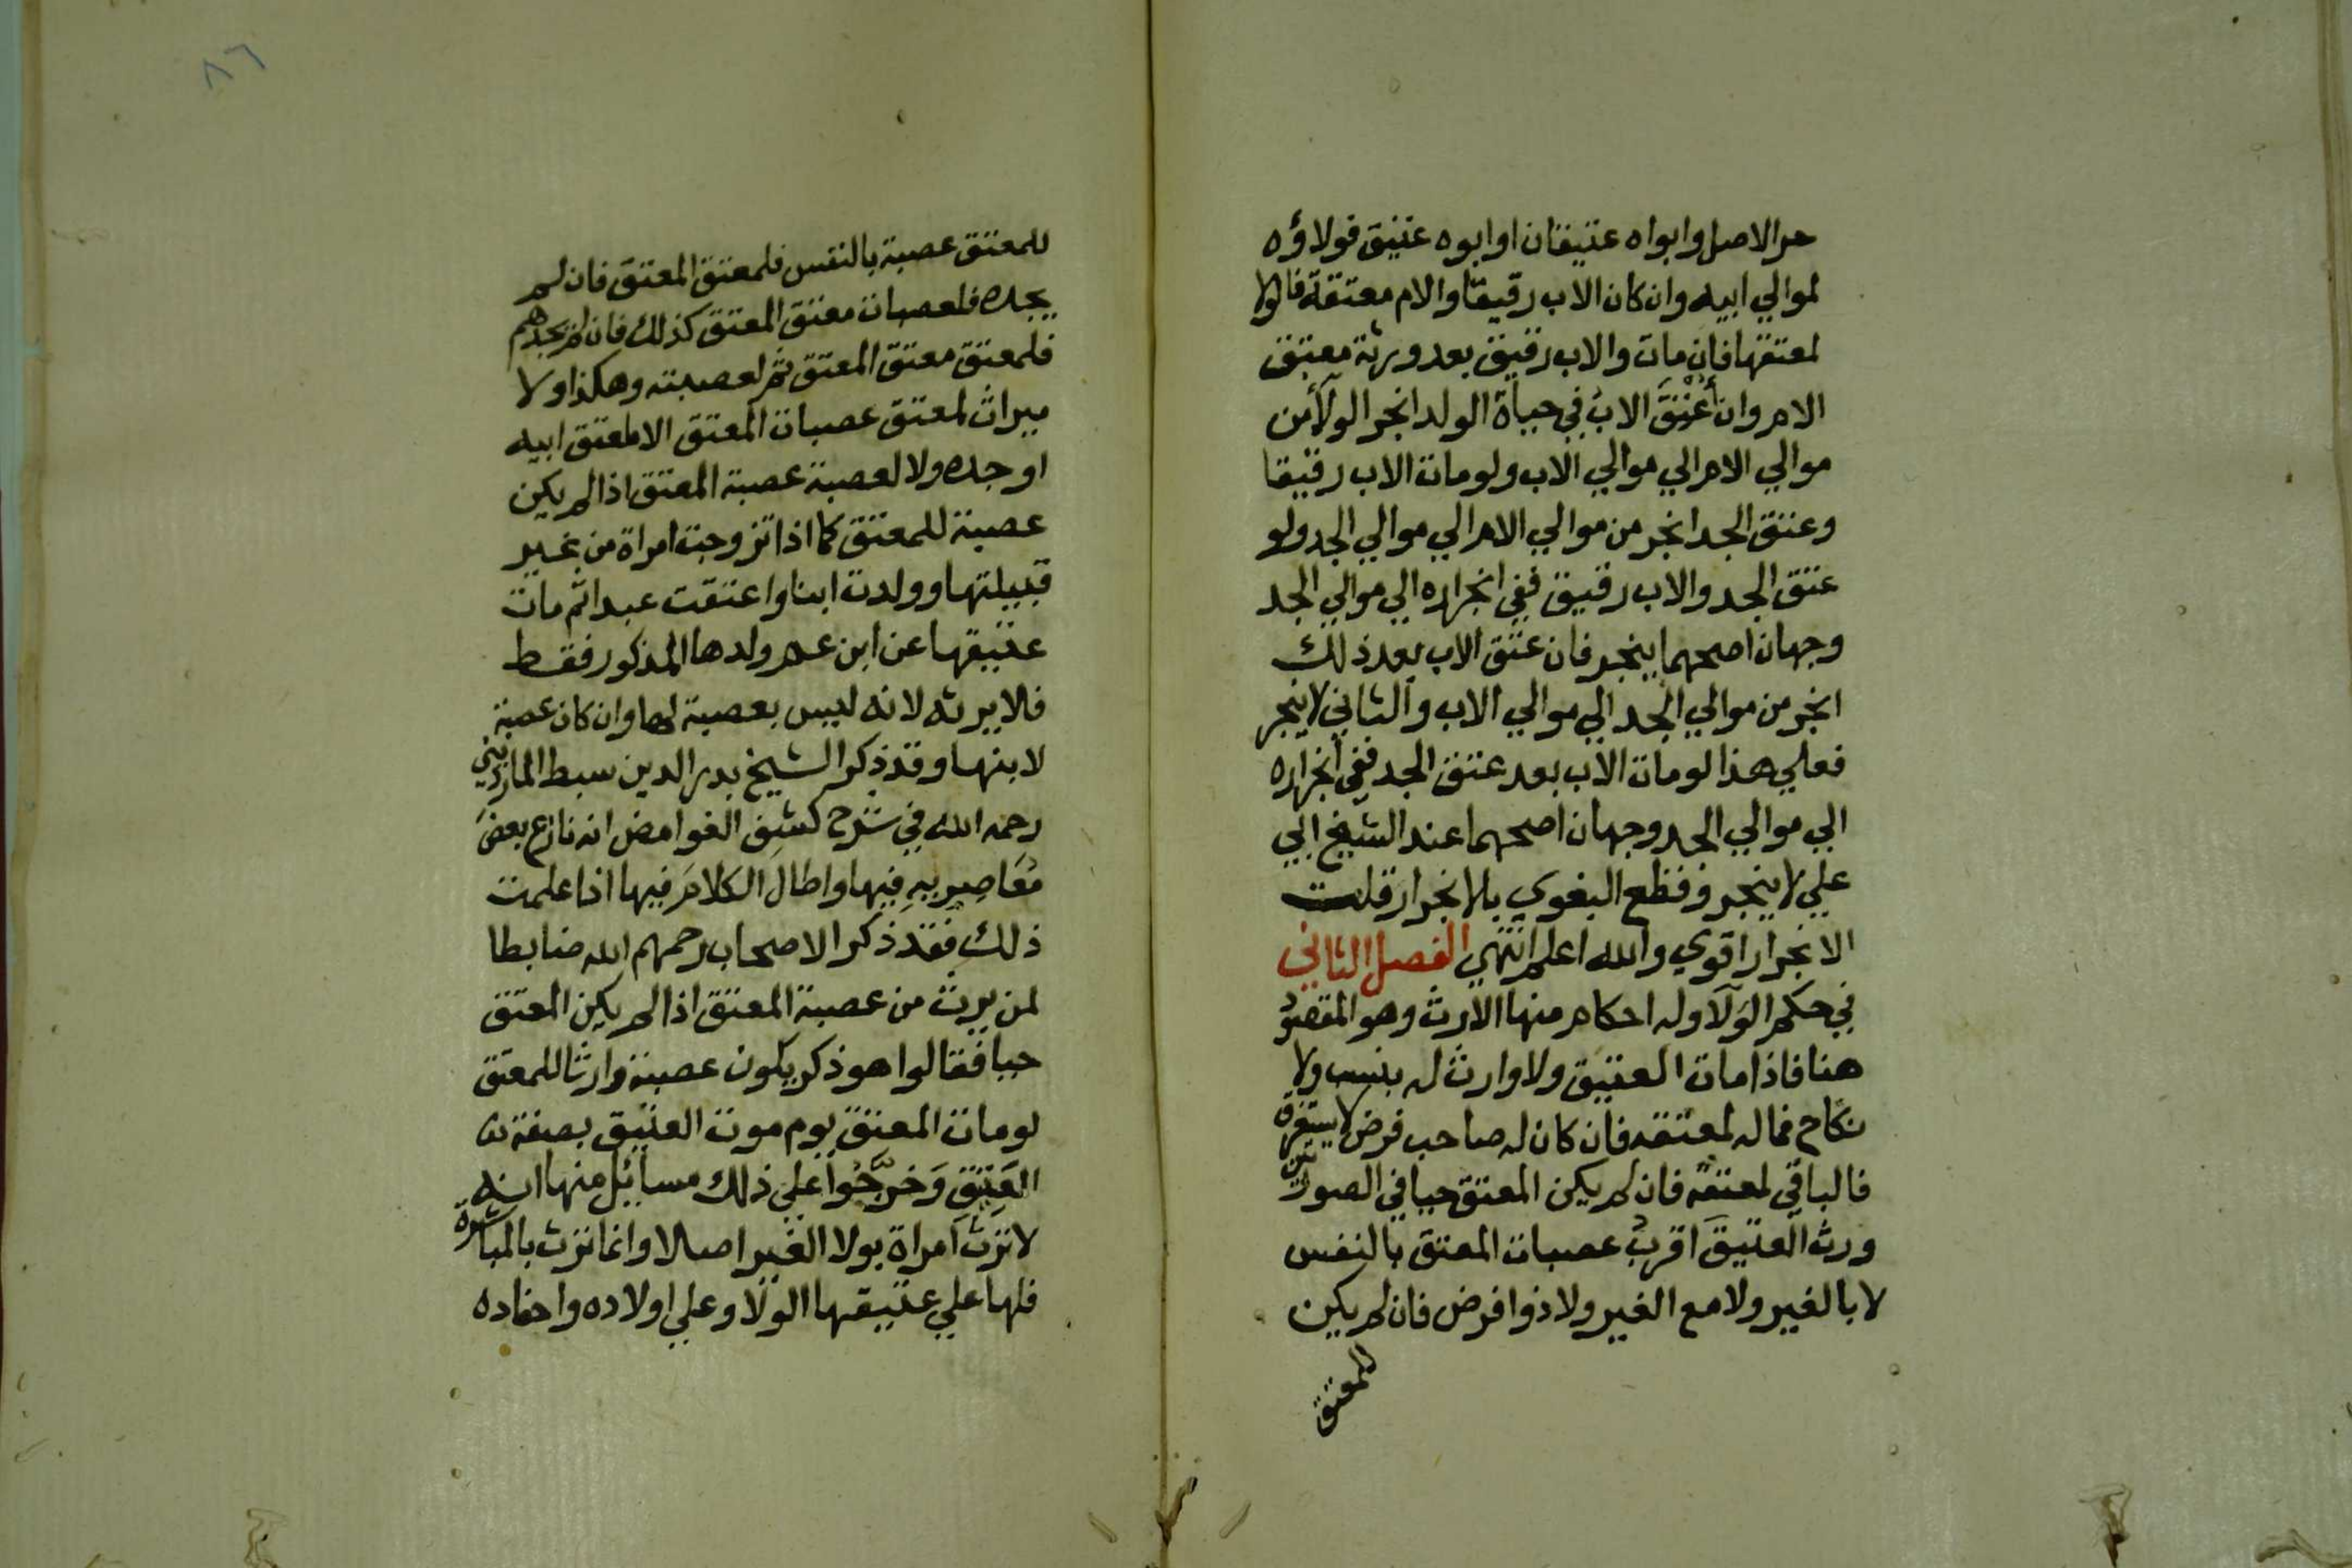 حر الاصل وابواه عتيقان او ابوه عتيق فولاؤه
لموالي ابيه وان كان الاب رقيقا والام معتقة فالولا
لمعتقها فان مات والاب رقيق بعد ورثة معتق
الام وان أعْتِقَ الابُ في حياة الولد انجر الولآءُ من
موالي الام الي موالي الاب ولو مات الاب رقيقا
وعتق الجد انجر من موالي الام الي موالي الجد ولو
عتق الجد والاب رقيق ففي انجراره الي موالي الجد
وجهان اصحهما ينجر فان عتق الاب بعد ذلك
انجر من موالي الجد الي موالي الاب والثاني لا ينجر
فعلي هذا لو مات الاب بعد عتق الجد ففي انجراره
الي موالي الجد وجهان اصحهما عند الشيخ ابي
علي لا ينجر وقطع البغوي بالانجرار قلت
الانجرار اقوي والله اعلم انتهي الفصل الثاني
في حكم الولآ وله احكام منها الارث وهو المقصود
هنا فاذا مات العتيق ولا وارث له بنسب ولا
نكاح فماله لمعتقه فان كان له صاحب فرض لا يستغرق
فالباقي لمعتقه فان لم يكن المعتق حيا في الصورتين
ورث العتيقَ اقربُ عصبات المعتق بالنفس
لا بالغير ولا مع الغير ولا ذوا فرض فان لم يكن
للمعتق
٨٦
للمعتق عصبة بالنفس فلمعتق المعتق فان لم
يجده فلعصبات معتق المعتق كذلك فان لم يجدهم
فلمعتق معتق المعتق ثم لعصبته وهكذا ولا
ميراث لمعتق عصبات المعتق الا لمعتق ابيه
او جده ولا لعصبة عصبة المعتق اذا لم يكن
عصبة للمعتق كما اذا تزوجت امراة من غير
قبيلتها وولدت ابنا واعتقت عبدا ثم مات
عتيقها عن ابن عم ولدها المذكور فقط
فلا يرثه لانه ليس بعصبة لها وان كان عصبة
لابنها وقد ذكر الشيخ بدر الدين سبط المارديني
رحمه الله في شرح كشف الغوامض انه نازع بعضَ
مُعَاصِرِيهِ فيها واطال الكلامَ فيها اذا علمت
ذلك فقد ذكر الاصحاب رحمهم الله ضابطا
لمن يرث من عصبة المعتق اذا لم يكن المعتق
حيا فقالوا هو ذكر يكون عصبة وارثا للمعتق
لو مات المعتق يوم موت العتيق بصفة
العَتِيق وَخرَّجُوا علي ذلك مسائل منها انه
لا تَرِثُ امراة بولا الغير اصلا وانما ترث بالمباشرة
فلها علي عتيقها الولا وعلي اولاده واحفاده